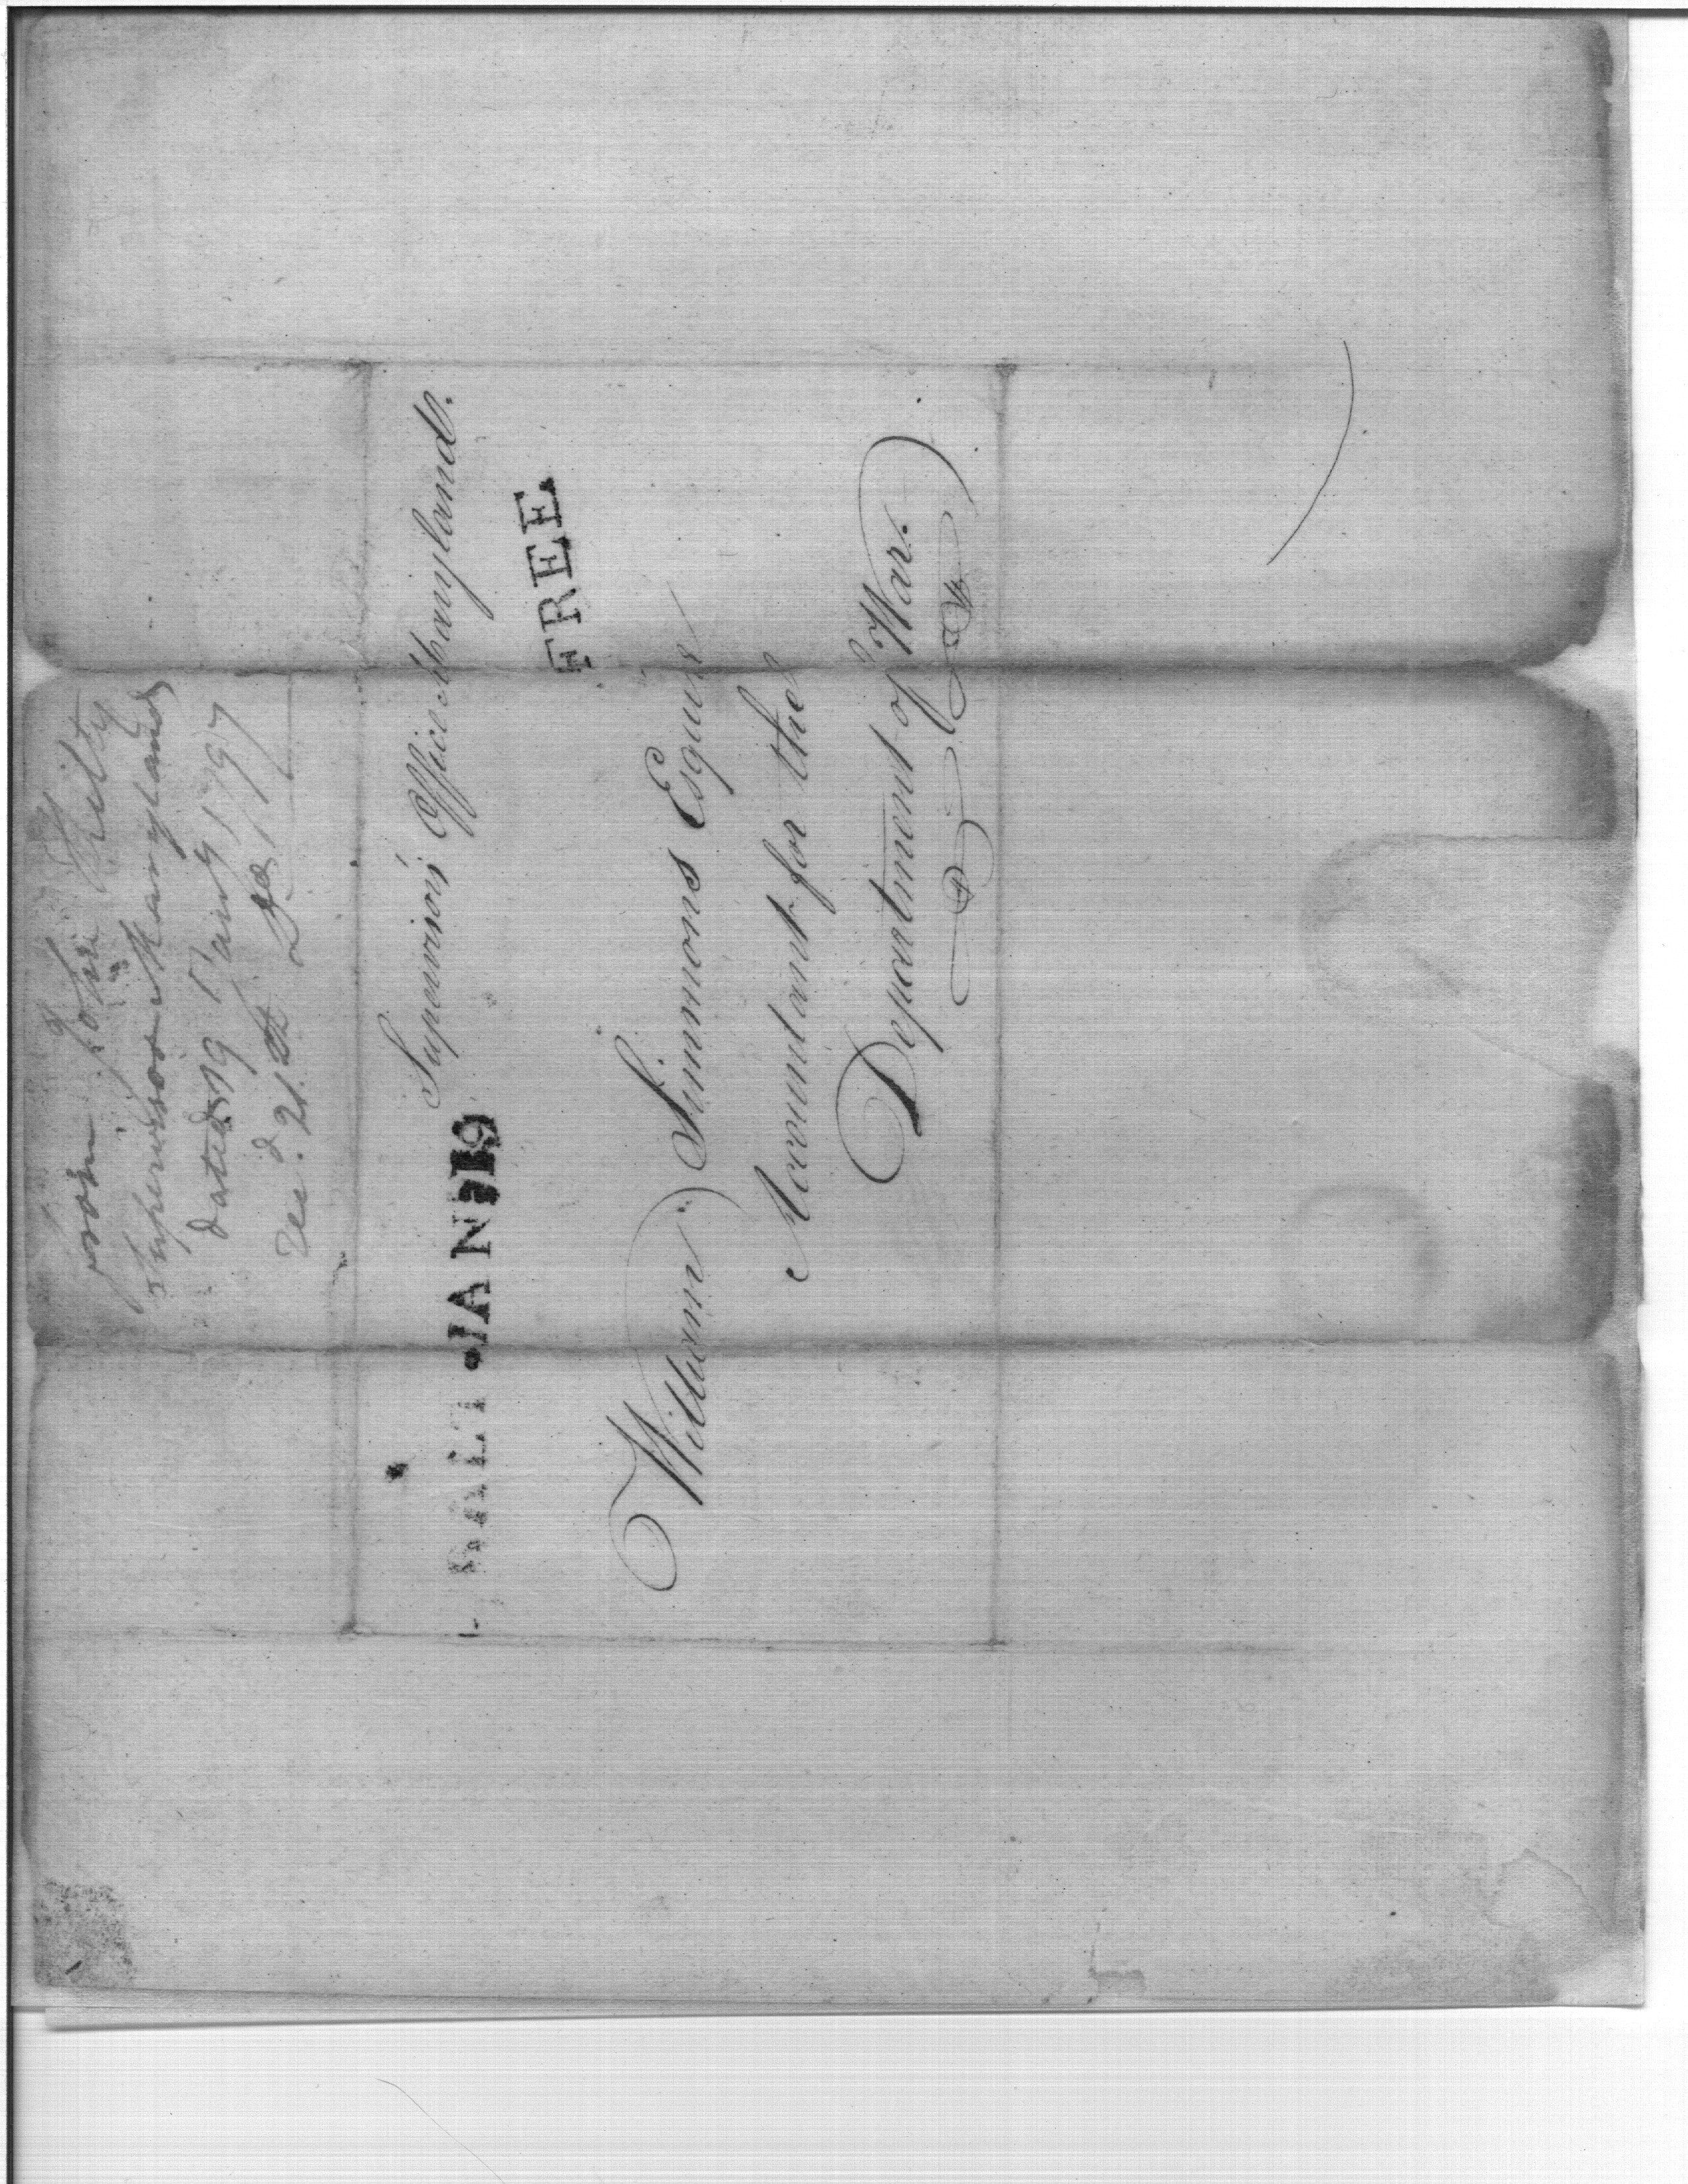 from John Kilty
Supervisor Maryland
dated 19 Jany 1797
Recd. 21st Do
Supervisor's Office Maryland.
BALT • JAN 19
FREE
William Simmons Esquire
Accountant for the
Department of War.